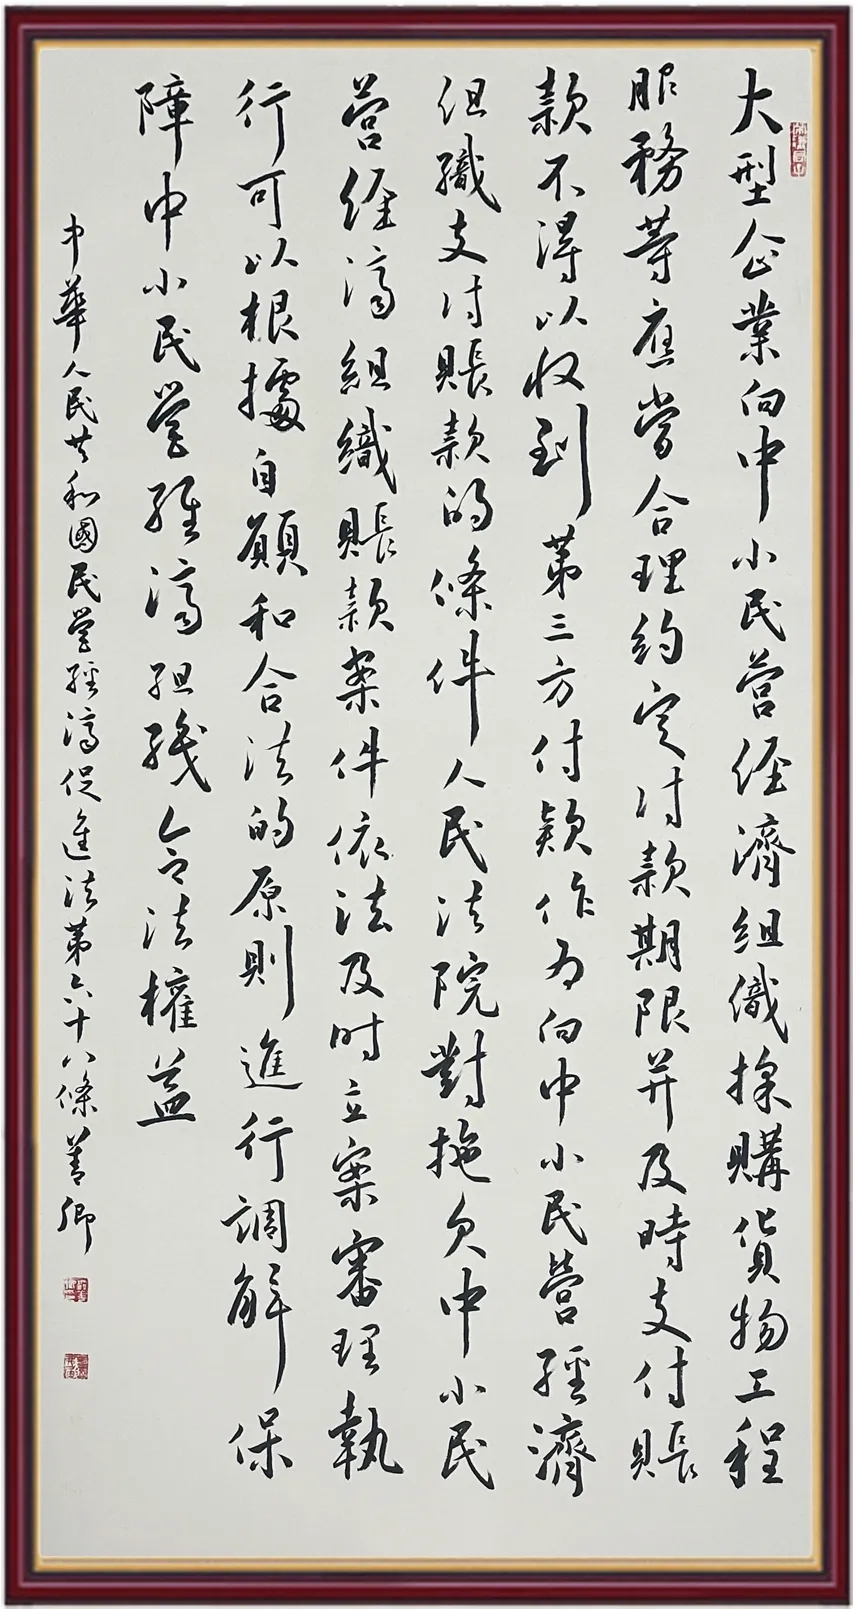 大型企業向中小民营经濟组織採購貨物工程
服務等應當合理约定付款期限并及時支付賬
款不得以收到第三方付款作为向中小民營經濟
组織支付賬款的條件人民法院對拖欠中小民
营经济組織賬款案件依法及时立案審理執
行可以根據自願和合法的原則進行調解保
障中小民営經济组織合法權益
中華人民共和國民営經济促進法第六十八條 善卿